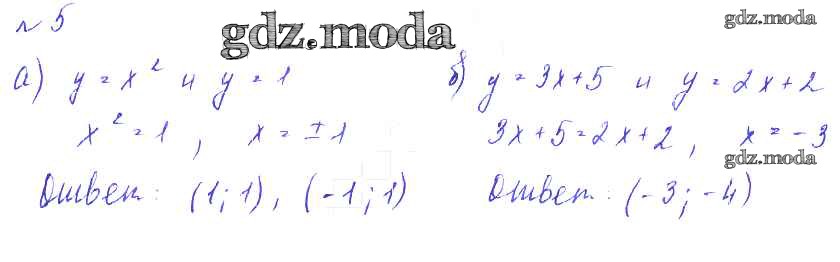 №5
gdz.moda
gdz.moda
а) y = x² и y = 1
x² = 1, x = ±1
Ответ: (1; 1), (-1; 1)
б) y = 3x+5 и y = 2x+2
3x+5=2x+2, x = -3
gdz.moda
Ответ: (-3; -4)